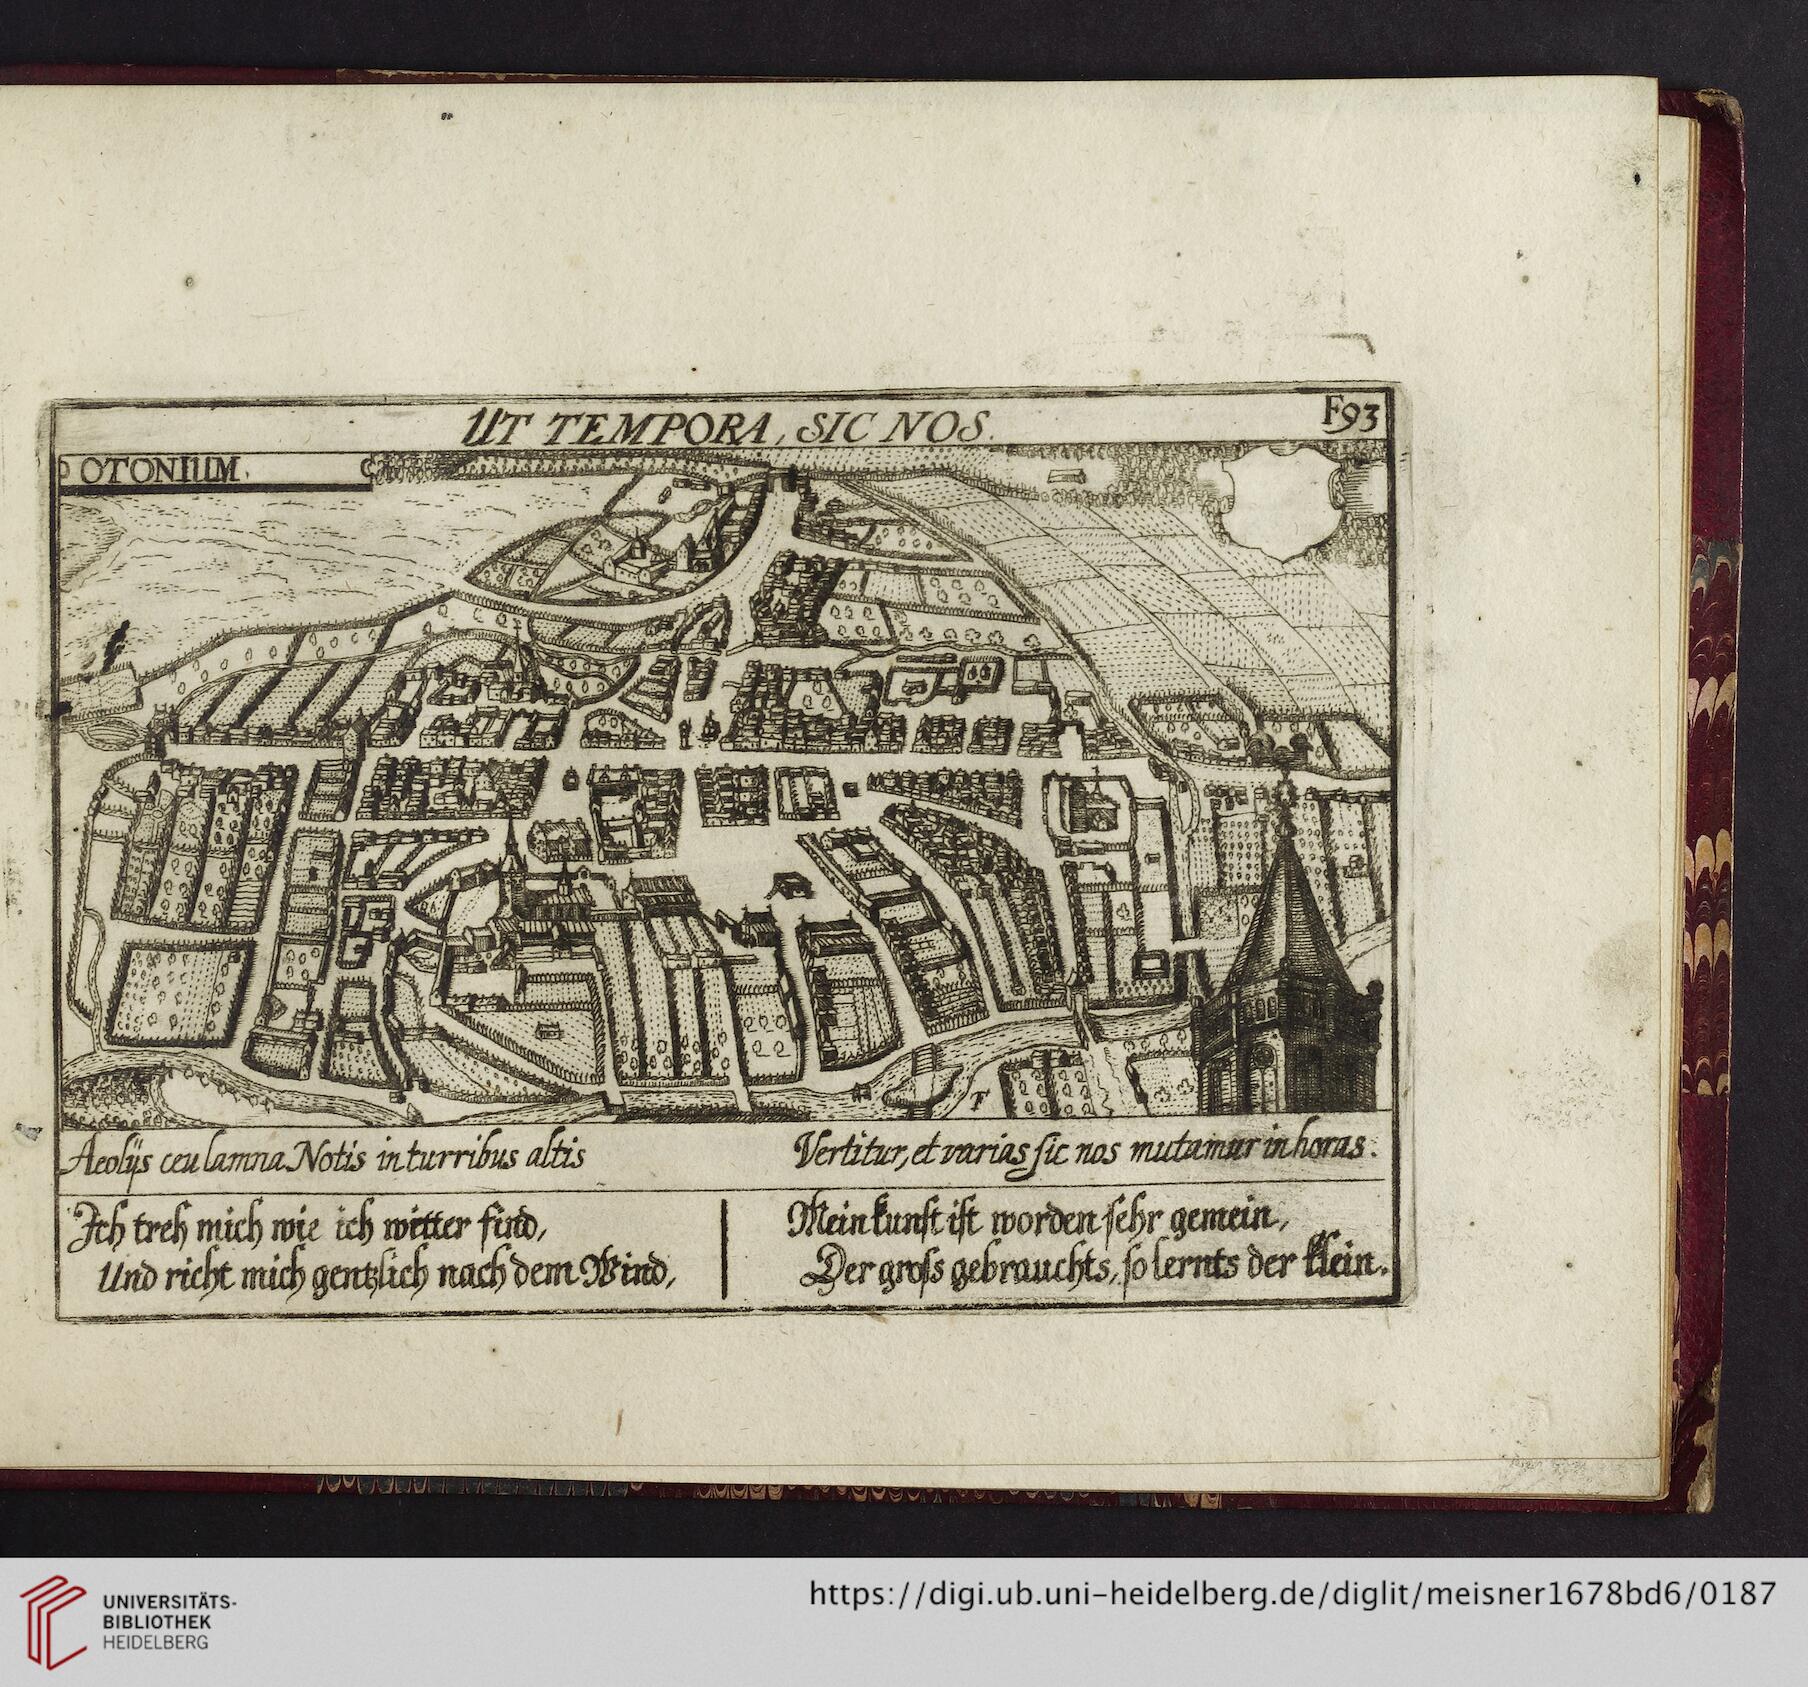 UT TEMPORA, SIC NOS.
F93
OTONIUM.
F
Aeolijs ceu lamna Notis in turribus altis
Vertitur, et varias sic nos mutamur in horas.
Ich treh mich wie ich witter find,
Und richt mich gentzlich nach dem Wind,
Mein kunst ist worden sehr gemein,
Der gross gebrauchts, so lernts der klein.
UNIVERSITÄTS-
BIBLIOTHEK
HEIDELBERG
https://digi.ub.uni-heidelberg.de/diglit/meisner1678bd6/0187